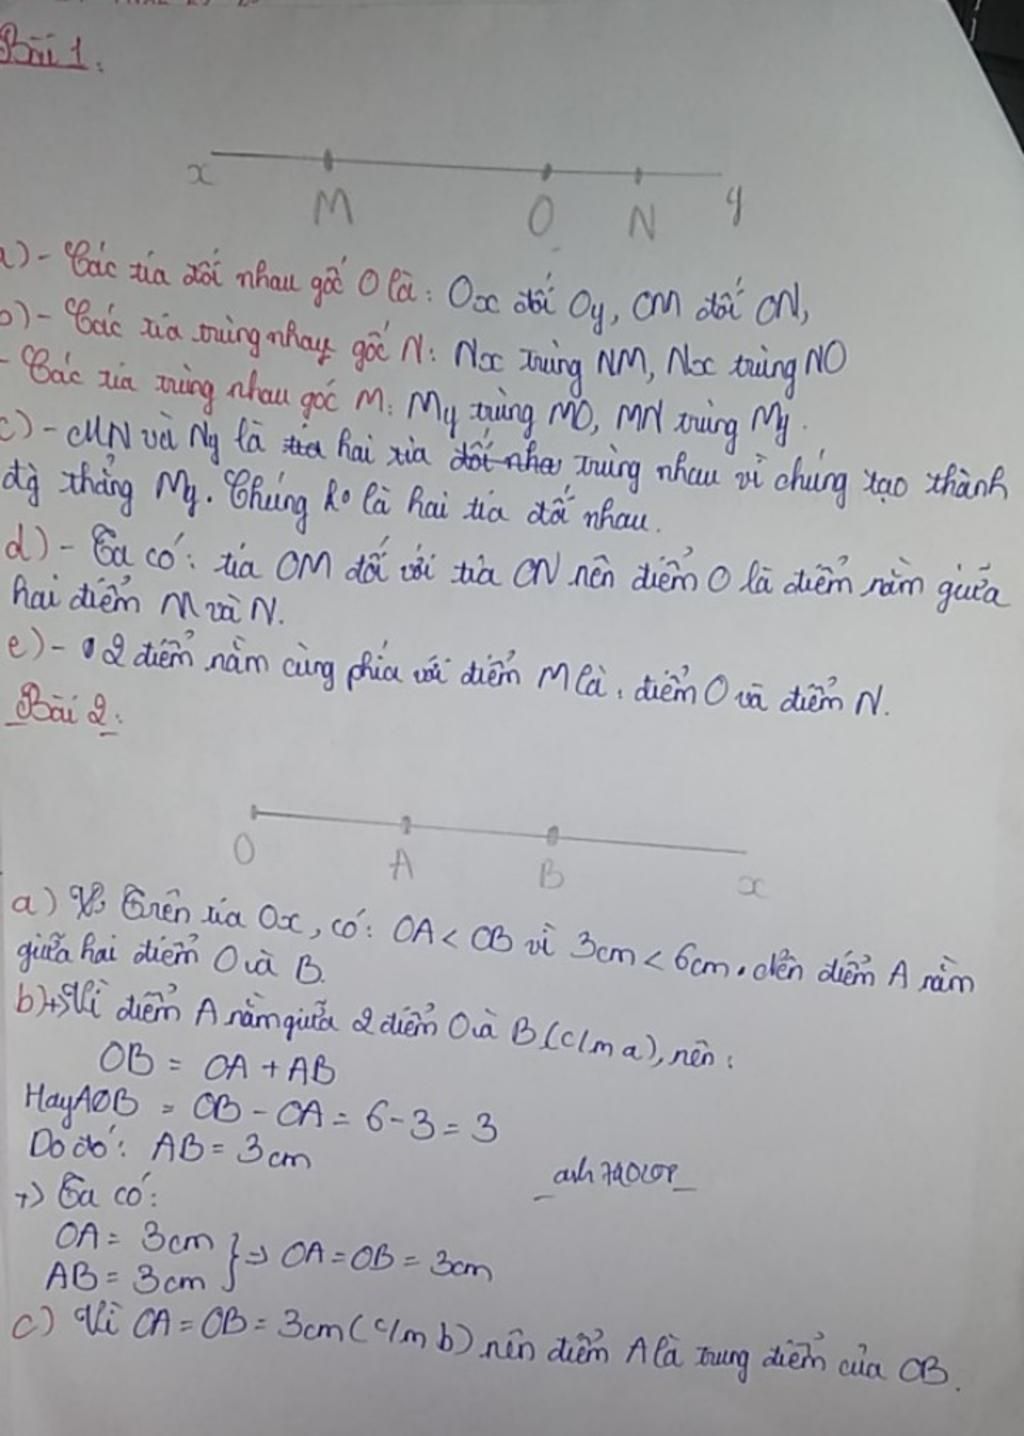 Bài 1:
x M O N y
a) - Các tia đối nhau gốc O là: Ox đối Oy, OM đối ON,
b) - Các tia trùng nhay gốc N: Nx trùng NM, Nx trùng NO
- Các tia trùng nhau gốc M: My trùng MO, MN trùng My.
c) - MN và Ny là tia hai tia đối nha trùng nhau vì chúng tạo thành
đg thẳng My. Chúng ko là hai tia đối nhau.
d) - Ta có: tia OM đối với tia ON nên điểm O là điểm nằm giữa
hai điểm M và N.
e) - 2 điểm nằm cùng phía với điểm M là: điểm O và điểm N.
Bài 2:
O A B x
a) Trên tia Ox, có: OA < OB vì 3cm < 6cm. Nên điểm A nằm
giữa hai điểm O và B.
b) +) Vì điểm A nằm giữa 2 điểm O và B (c/m a), nên:
OB = OA + AB
Hay AB = OB - OA = 6 - 3 = 3
Do đó: AB = 3cm
+) Ta có:
OA = 3cm
AB = 3cm } => OA = OB = 3cm
c) Vì OA = OB = 3cm (c/m b) nên điểm A là trung điểm của OB.